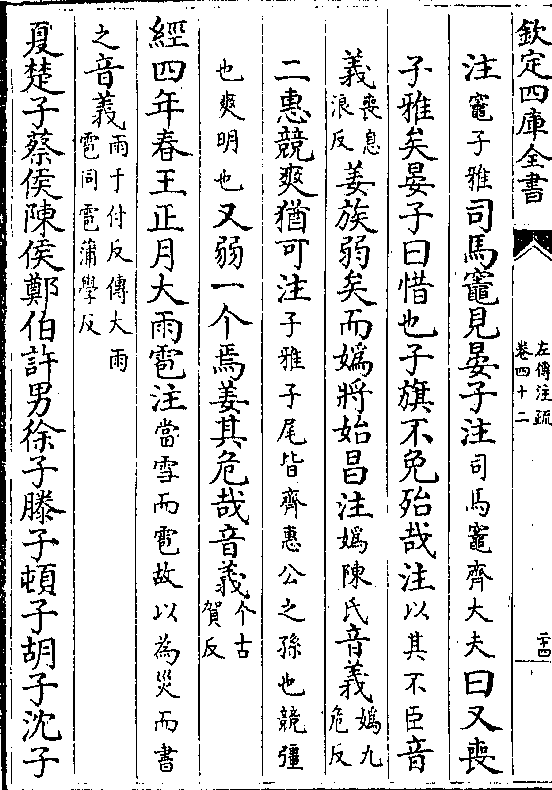 欽定四庫全書
左傳注疏
卷四十二
二十四
注竈子雅司馬竈見晏子注司馬竈齊大夫曰又喪
子雅矣晏子曰惜也子旗不免殆哉注以其不臣音
義喪息浪反姜族弱矣而媯將始昌注媯陳氏音義媯九危反
二惠競爽猶可注子雅子尾皆齊惠公之孫也競彊
也爽明也又弱一个焉姜其危哉音義个古賀反
經四年春王正月大雨雹注當雪而雹故以為災而書
之音義雨于付反傳大雨雹同雹蒲學反
夏楚子蔡侯陳侯鄭伯許男徐子滕子頓子胡子沈子